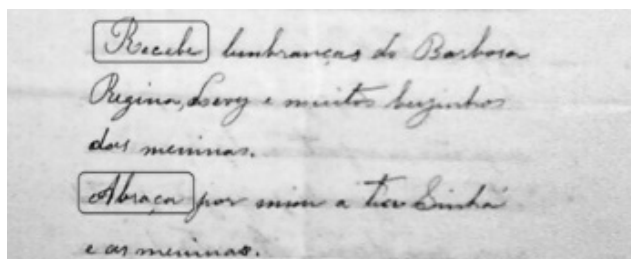 Recebe lembranças do Barbosa
Regina, Levy e muitos beijinhos
das meninas.
Abraça por mim a tia Sinhá
e as meninas.